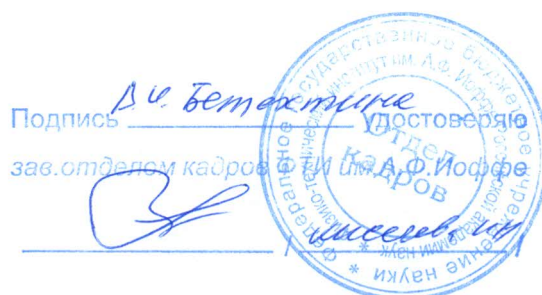 Подпись В.И. Бетехтина удостоверяю
зав.отделом кадров ФТИ им.А.Ф.Иоффе
Отдел
кадров
Федеральное государственное бюджетное учреждение науки *
Физико-технический институт им. А.Ф. Иоффе Российской академии наук *